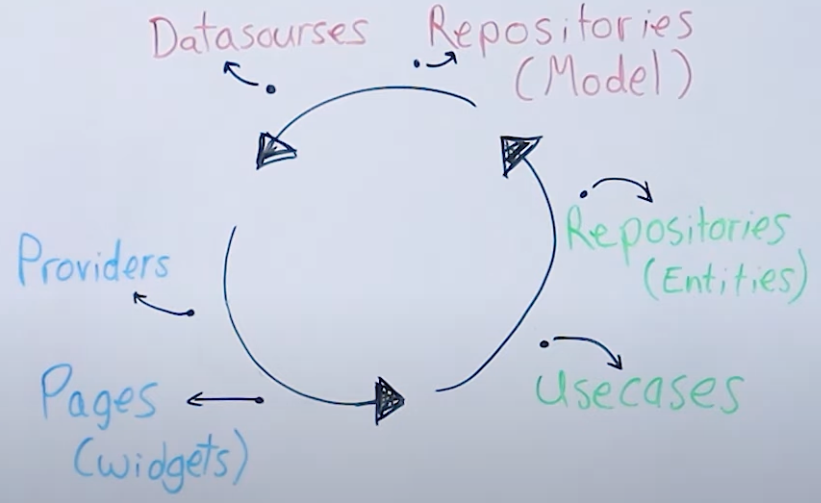 Datasourses
Repositories
(Model)
Repositories
(Entities)
Usecases
Providers
Pages
(widgets)